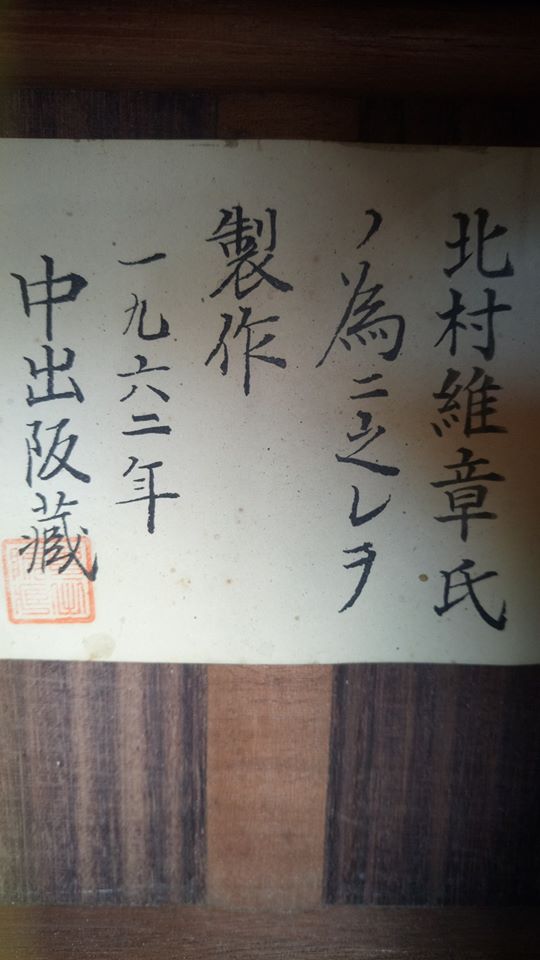 北村維章氏
ノ為ニ之レヲ
製作
一九六二年
中出阪藏